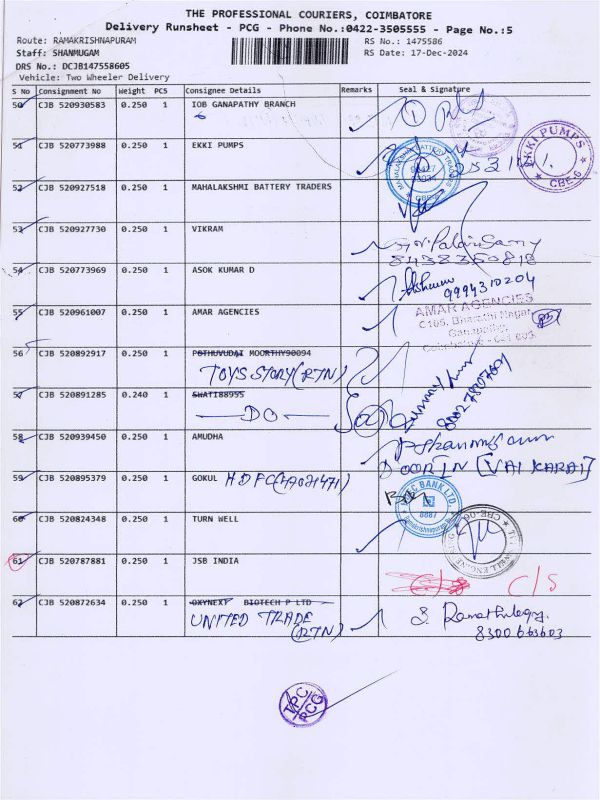 THE PROFESSIONAL COURIERS, COIMBATORE
Delivery Runsheet - PCG - Phone No.:0422-3505555 - Page No.:5
Route: RAMAKRISHNAPURAM RS No.: 1475586
Staff: SHANMUGAM RS Date: 17-Dec-2024
DRS No.: DCJB147558605
Vehicle: Two Wheeler Delivery
S No Consignment No Weight PCS Consignee Details Remarks Seal & Signature
50 CJB 520930583 0.250 1 IOB GANAPATHY BRANCH
6
51 CJB 520773988 0.250 1 EKKI PUMPS
EKKI PUMPS
CBE-6
52 CJB 520927518 0.250 1 MAHALAKSHMI BATTERY TRADERS
MAHALAKSHMI BATTERY TRADERS
CBE-6
53 CJB 520927730 0.250 1 VIKRAM
8438350818
54 CJB 520773969 0.250 1 ASOK KUMAR D
9994310204
55 CJB 520961007 0.250 1 AMAR AGENCIES
AMAR AGENCIES
C105, Bharathi Nagar,
Ganapathy,
Coimbatore - 641 006.
56 CJB 520892917 0.250 1 POTHUVUDAI MOORTHY90094
TOYS STORY (RTN)
57 CJB 520891285 0.240 1 SHATI88955
DO
58 CJB 520939450 0.250 1 AMUDHA
DOOR IN [VAIKARAI]
59 CJB 520895379 0.250 1 GOKUL HDFC
60 CJB 520824348 0.250 1 TURN WELL
61 CJB 520787881 0.250 1 JSB INDIA
C/S C/S
62 CJB 520872634 0.250 1 OXYNEXT BIOTECH P LTD
UNITED TRADE
(RTN)
8300663603
TPC
PCG